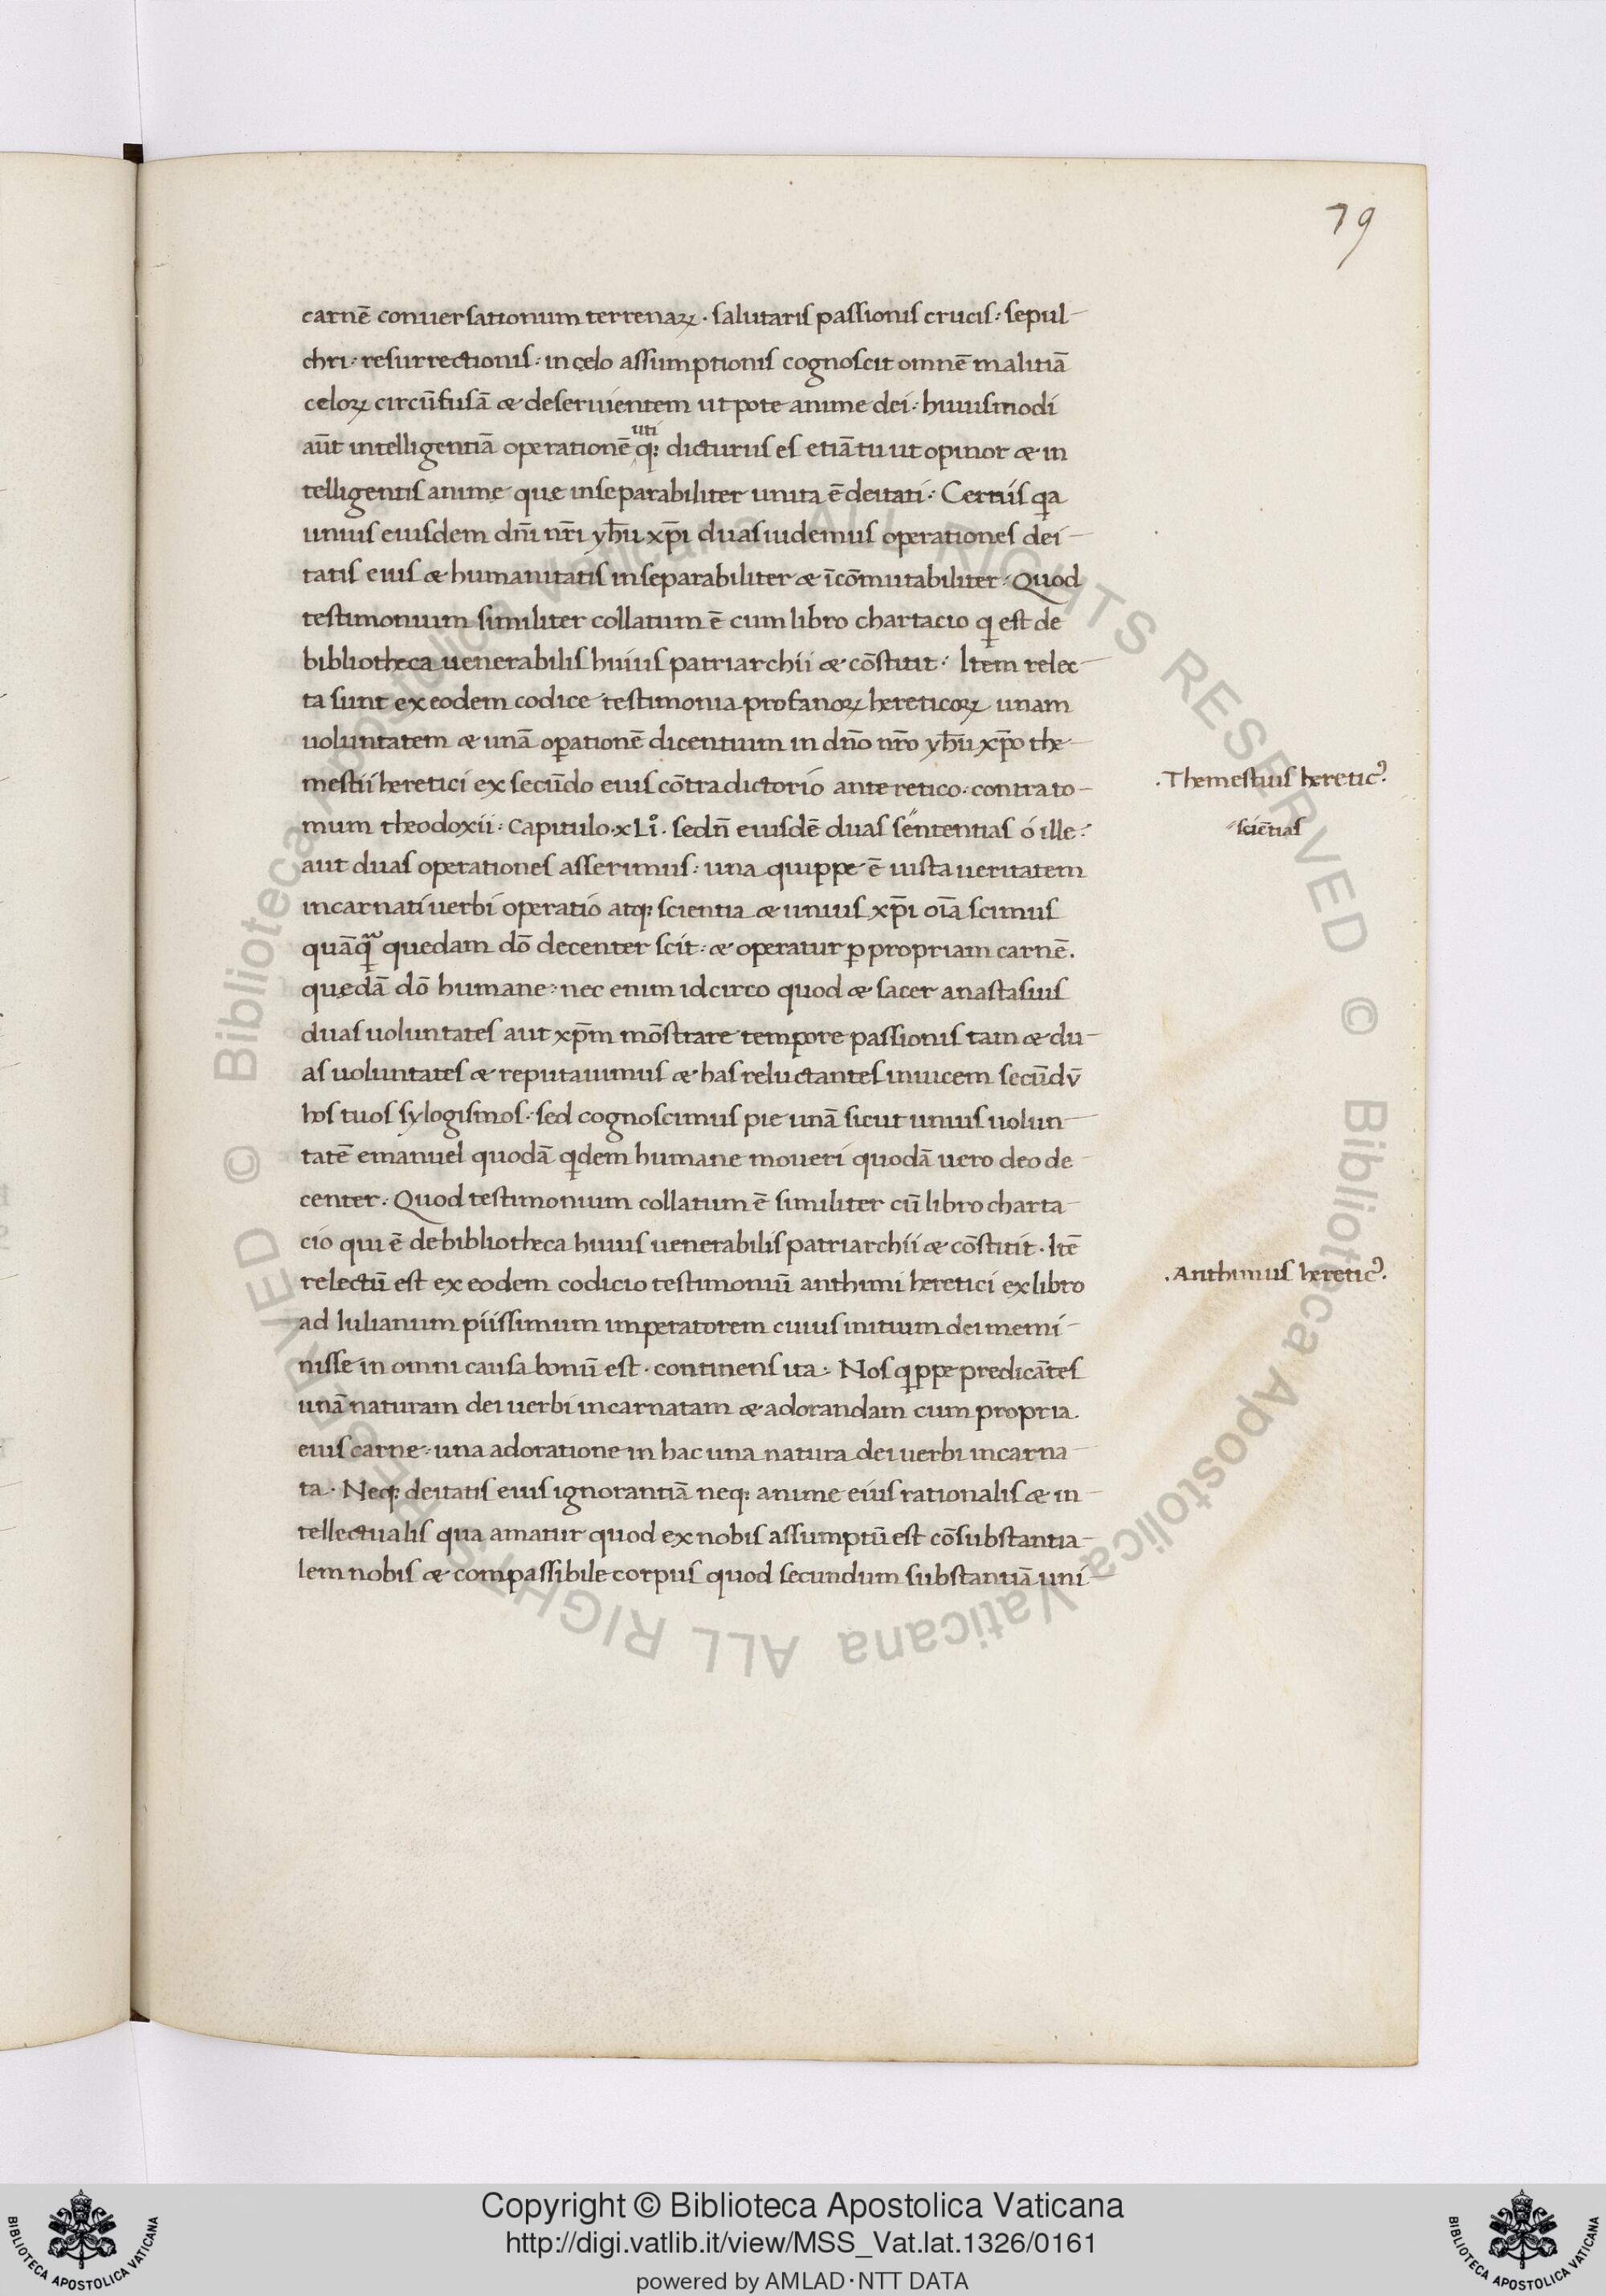 79
carnē conuersationum terrenaꝝ · salutaris passionis crucis : sepul-
chri : resurrectionis : in cęlo assumptionis cognoscit omnē malitiā
celoꝝ circūfusā & deseruientem ut pote anime dei : huiusmodi
aūt intelligentiā operationē uti q; dicturus es etiā tu ut opinor & in
telligentis animę que inseparabiliter unita ē deitati : Certiis qa
unius eiusdem dn̄i nr̄i yhū xp̄i duas uidemus operationes dei-
tatis eius & humanitatis inseparabiliter & īcōmutabiliter · Quod
testimonium similiter collatum ē cum libro chartacio q est de
bibliotheca uenerabilis huius patriarchii & cōstitit : Item relec-
ta sunt ex eodem codice testimonia profanoꝝ hereticoꝝ unam
uoluntatem & unā oꝑationē dicentium in dn̄o nr̄o yhū xp̄o the-
mestii heretici ex secūdo eius cōtradictorio ante retico · contra to-
.Themestius heretic⁹.
mum theodoxii : Capitulo · xLi° · sedn̄ eiusdē duas s″ententias ó ille :
″sciētias
aut duas operationes asserimus : una quippe ē iusta ueritatem
incarnati uerbi operatio atq; scientia & unius xp̄i oīa scimus
quāqᷓ quedam dō decenter scit : & operatur ꝑ propriam carnē .
quędā dō humane : nec enim idcirco quod & sacer anastasius
duas uoluntates aut xp̄m mōstrare tempore passionis tam & du-
as uoluntates & reputauimus & has reluctantes inuicem secūdv̄
hos tuos sylogismos · sed cognoscimus pie unā sicut unius uolun-
tatē emanuel quodā qdem humane moueri quodā uero deo de
center : Quod testimonium collatum ē similiter cū libro charta-
cio qui ē de bibliotheca huius uenerabilis patriarchii & cōstitit · Itē
relectū est ex eodem codicio testimoniū anthimi heretici ex libro
.Anthimus heretic⁹.
ad Iulianum piissimum imperatorem cuius initium dei memi-
nisse in omni causa bonū est · continens ita : Nos qppe predicātes
unā naturam dei uerbi incarnatam & adorandam cum propria
eius carne : una adoratione in hac una natura dei uerbi incarna-
ta · Neq; deitatis eius ignorantiā neq; anime eius rationalis & in-
tellectualis qua amatur quod ex nobis assumptū est cōsubstantia-
lem nobis & compassibile corpus quod secundum substantiā uni-
© Biblioteca Apostolica Vaticana ALL RIGHTS RESERVED © Biblioteca Apostolica Vaticana ALL RIGHTS RESERVED
BIBLIOTECA APOSTOLICA VATICANA
Copyright © Biblioteca Apostolica Vaticana
http://digi.vatlib.it/view/MSS_Vat.lat.1326/0161
powered by AMLAD·NTT DATA
BIBLIOTECA APOSTOLICA VATICANA